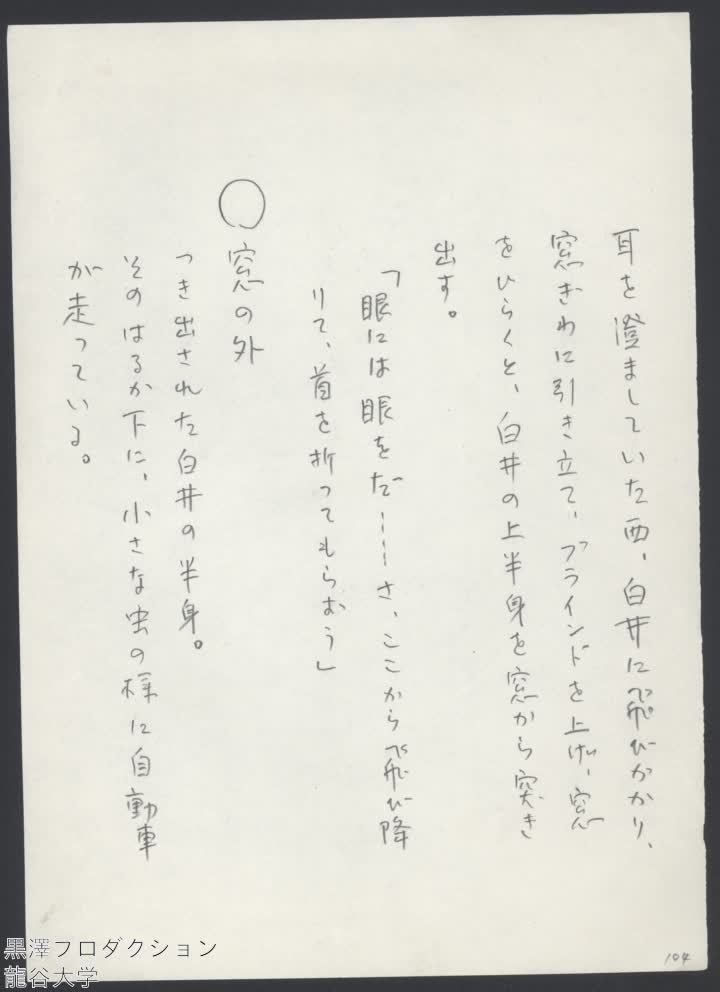 耳を澄ましていた西、白井に飛びかかり、
窓ぎわに引き立て、ブラインドを上げ、窓
をひらくと、白井の上半身を窓から突き
出す。
「眼には眼をだ――さ、ここから飛び降
りて、首を折ってもらおう」
○窓の外
つき出された白井の半身。
そのはるか下に、小さな虫の様に自動車
が走っている。
104
黒澤プロダクション
龍谷大学